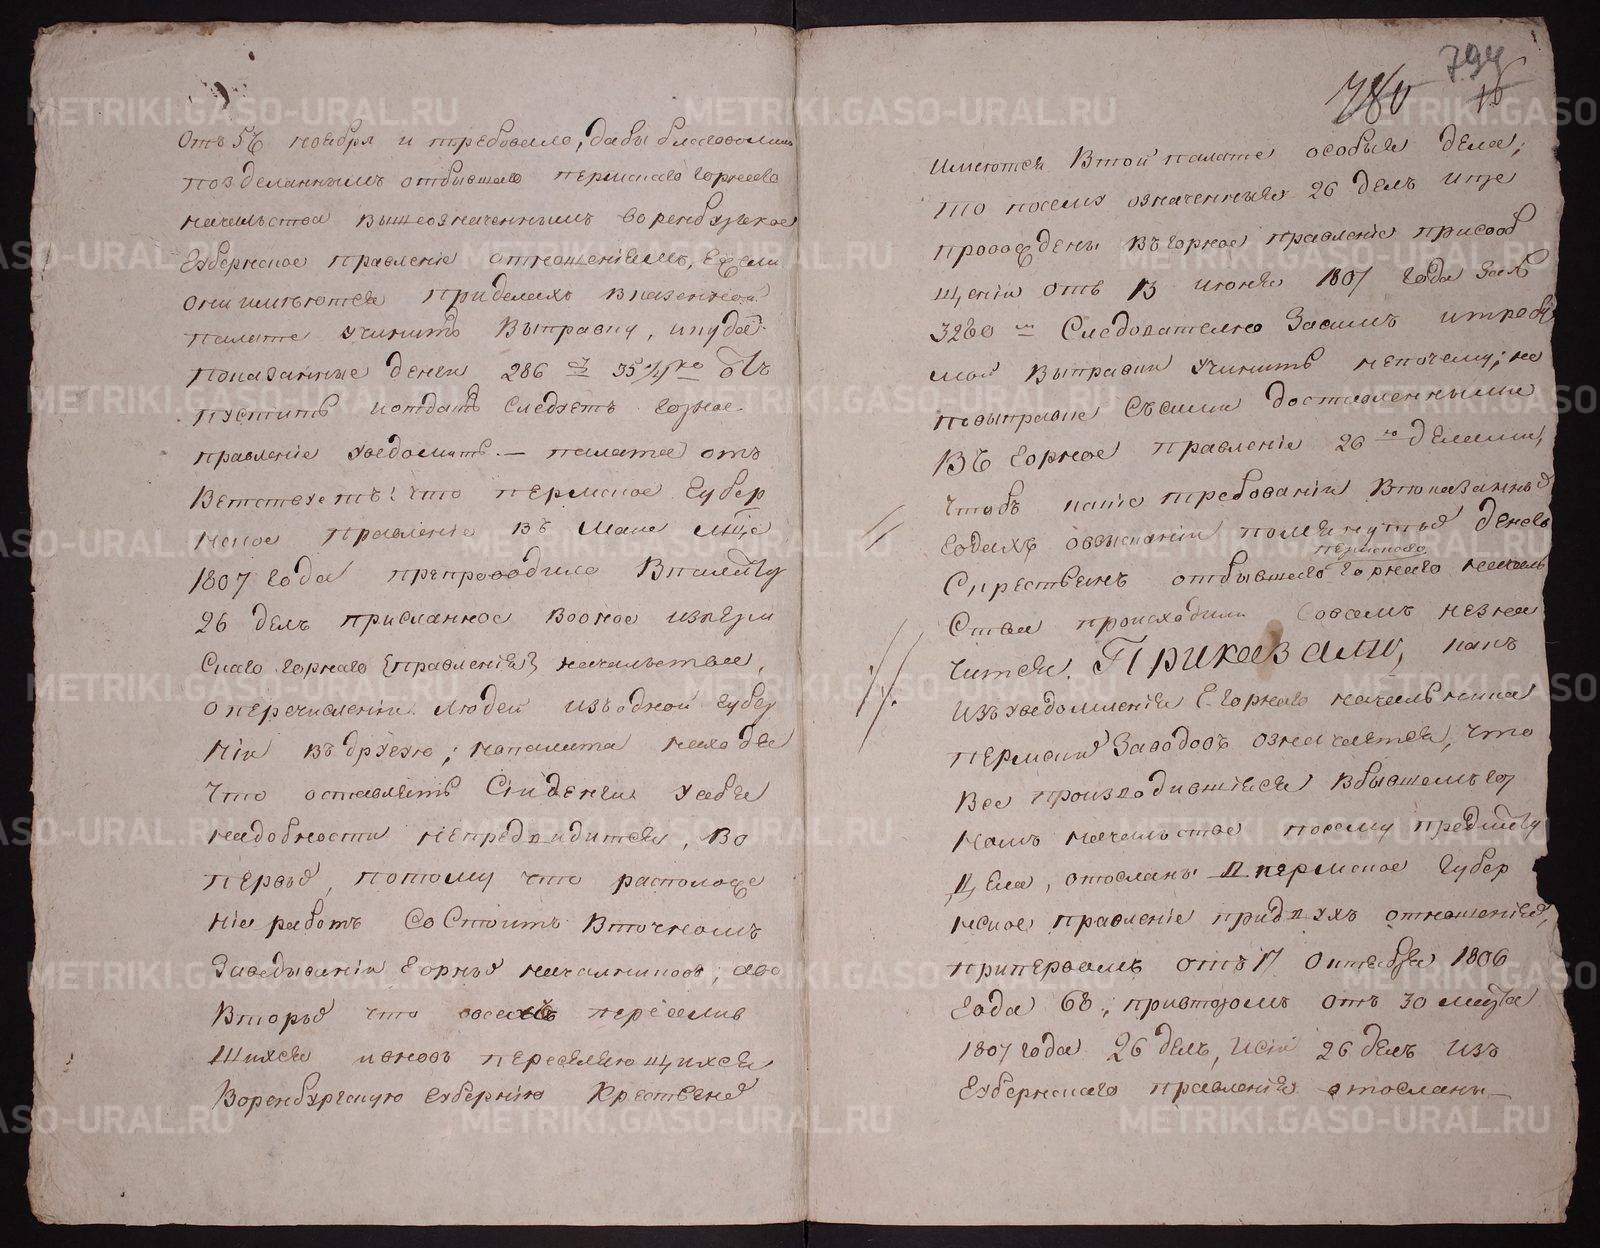 отъ 5ъ ноября и требовало, дабы благоволила
поз деланнымъ отбывшаго пермскаго горнаго
начальства вышеозначеннымъ воренбургское
губернское правленіе отношеніемъ, Ежели
они имѣются приделахъ вказенной
палате учинить выправку, и куда
показанные денги 286 35 1/4 ко
пустить и отдать следуетъ горное
правленіе уведомить. — палата от
ветствуетъ: что пермское губер
нское правленіе въ Маие
1807 года препроводило впалату
26 делъ присланное воное изперм
скаго горнаго правленія начальства,
о перечисленіи людей изъ одной губер
ніи въ другую; но палата находя
что оставлять Сіи дѣла у себя
надобности непредвидится, во
первыхъ, потому что расположе
ніе работъ состоитъ вточномъ
Заведываніи горныхъ начальниковъ; аво
вторыхъ что овсехъ переселив
шихся и вновь переселяющихся
воренбургскую губернію крестьянѣ
780 794 16
имеются втой палате особыя дела;
то посему означенныя 26 делъ и пре
провождены въ горное правленіе присооб
щеніи отъ 13 июня 1807 года за №
3260 м Следователно Засимъ итребуе
мой выправки учинить непочему; но
повыправке съсими доставленными
въ горное правленіе 26 ю делами,
чтобъ какіе требованіи впоказанныхъ
годахъ овзысканіи помянутыхъ денегъ
Скрестьянъ отбывшаго пермскаго горнаго началь
ства происходили совсемъ незна
чится. Приказали, какъ
изъ уведомленія Г. горнаго начальника
пермскихъ Заводовъ означается, что
все производившіеся вбывшемъ гор
номъ начальстве посему предмету
дела, отосланы в пермское губер
нское правленіе придвухъ отношеніяхъ,
припервомъ отъ 17 Октября 1806
года 68, привторомъ отъ 30 марта
1807 года 26 делъ, исіи 26 делъ изъ
губернскаго правленія отосланы —
METRIKI.GASO-URAL.RU